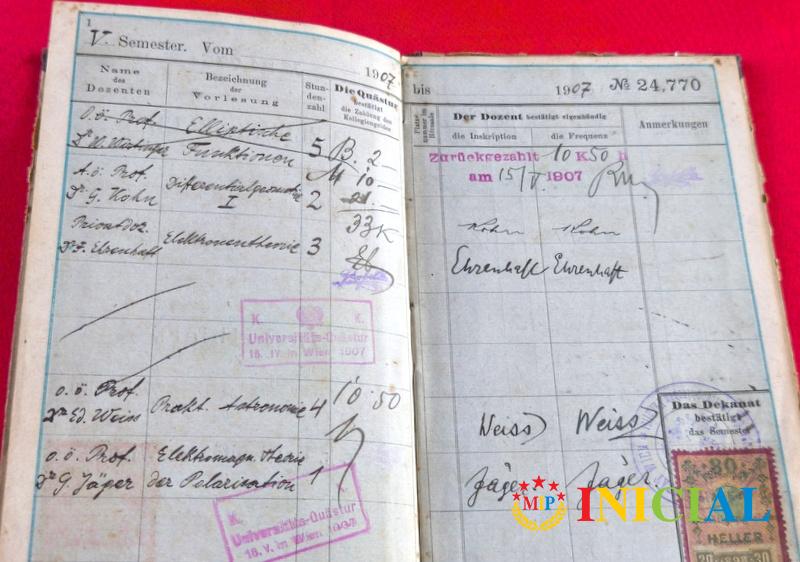 1
V. Semester. Vom
1907
Name
des
Dozenten
Bezeichnung
der
Vorlesung
Stun-
den-
zahl
Die Quästur
bestätigt
die Zahlung des
Kollegiengeldes
o. ö. Prof.
Elliptische
Funktionen
5
B. 2
A. ö. Prof.
Dr G. Kohn
Differentialgeometrie
I
2
10
21
33K
Privatdoz.
Dr F. Ehrenhaft
Elektronentheorie
3
K. K.
Universitäts-Quästur
16. IV. in Wien 1907
o. ö. Prof.
Dr Ed. Weiss
Prakt. Astronomie
4
10 50
o. ö. Prof.
Dr G. Jäger
Elektromagn. Theorie
der Polarisation
1
K.
Universitäts-Quästur
16. V. in Wien 1907
bis
1907
№ 24,770
Platz-
nummer im
Hörsaale
Der Dozent bestätigt eigenhändig
die Inskription
die Frequenz
Anmerkungen
Zurückgezahlt 10 K 50 h
am 15/V. 1907
Kohn Kohn
Ehrenhaft Ehrenhaft
Weiss Weiss
Jäger Jäger
Das Dekanat
bestätigt
das Semester
30
HELLER
30
MIP INICIAL